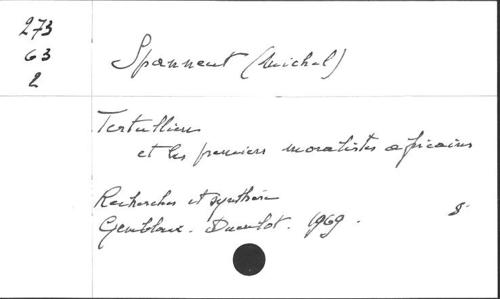 273
63
2
Spanneut (Michel)
Tertullien
et les premiers moralistes africains
Recherches et synthèses
Gembloux. Duculot. 1969.
8°